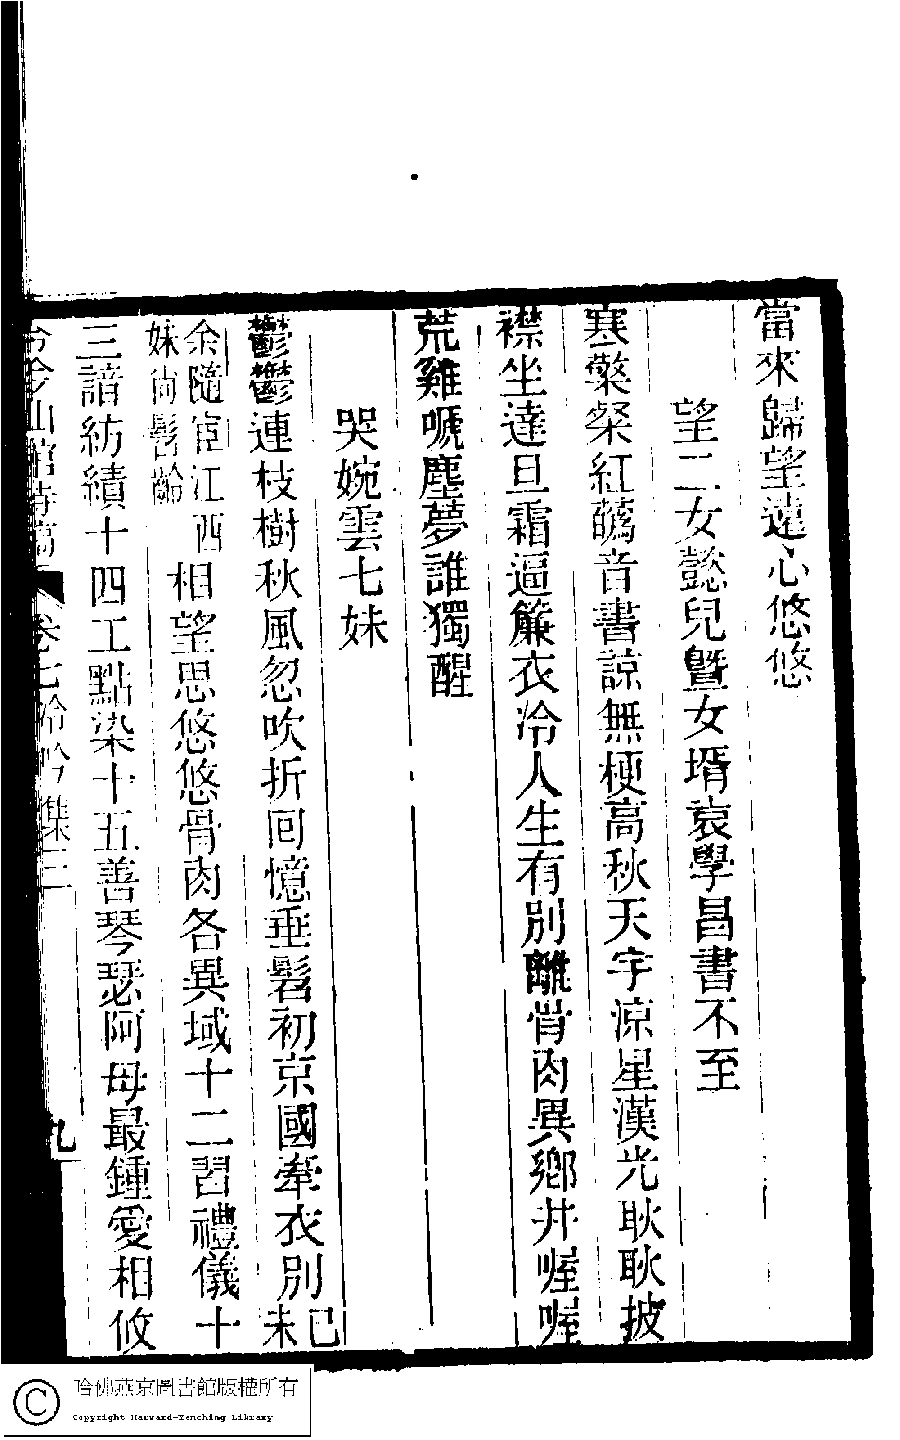 當來歸望遠心悠悠
望二女懿兒暨女壻袁學昌書不至
寒檠粲紅蘤音書諒無梗高秋天宇涼星漢光耿耿披
襟坐達旦霜逼簾衣冷人生有別離骨肉異鄉井喔喔
荒雞嗁塵夢誰獨醒
哭婉雲七妹
鬱鬱連枝樹秋風忽吹折回憶垂髫初京國牽衣別己未
余隨宦江西妹尚髫齡相望思悠悠骨肉各異域十二習禮儀十
三諳紡績十四工點染十五善琴瑟阿母最鍾愛相攸
冷吟仙館詩稿 卷七冷吟集三 九
哈佛燕京圖書館版權所有
Copyright Harvard-Yenching Library